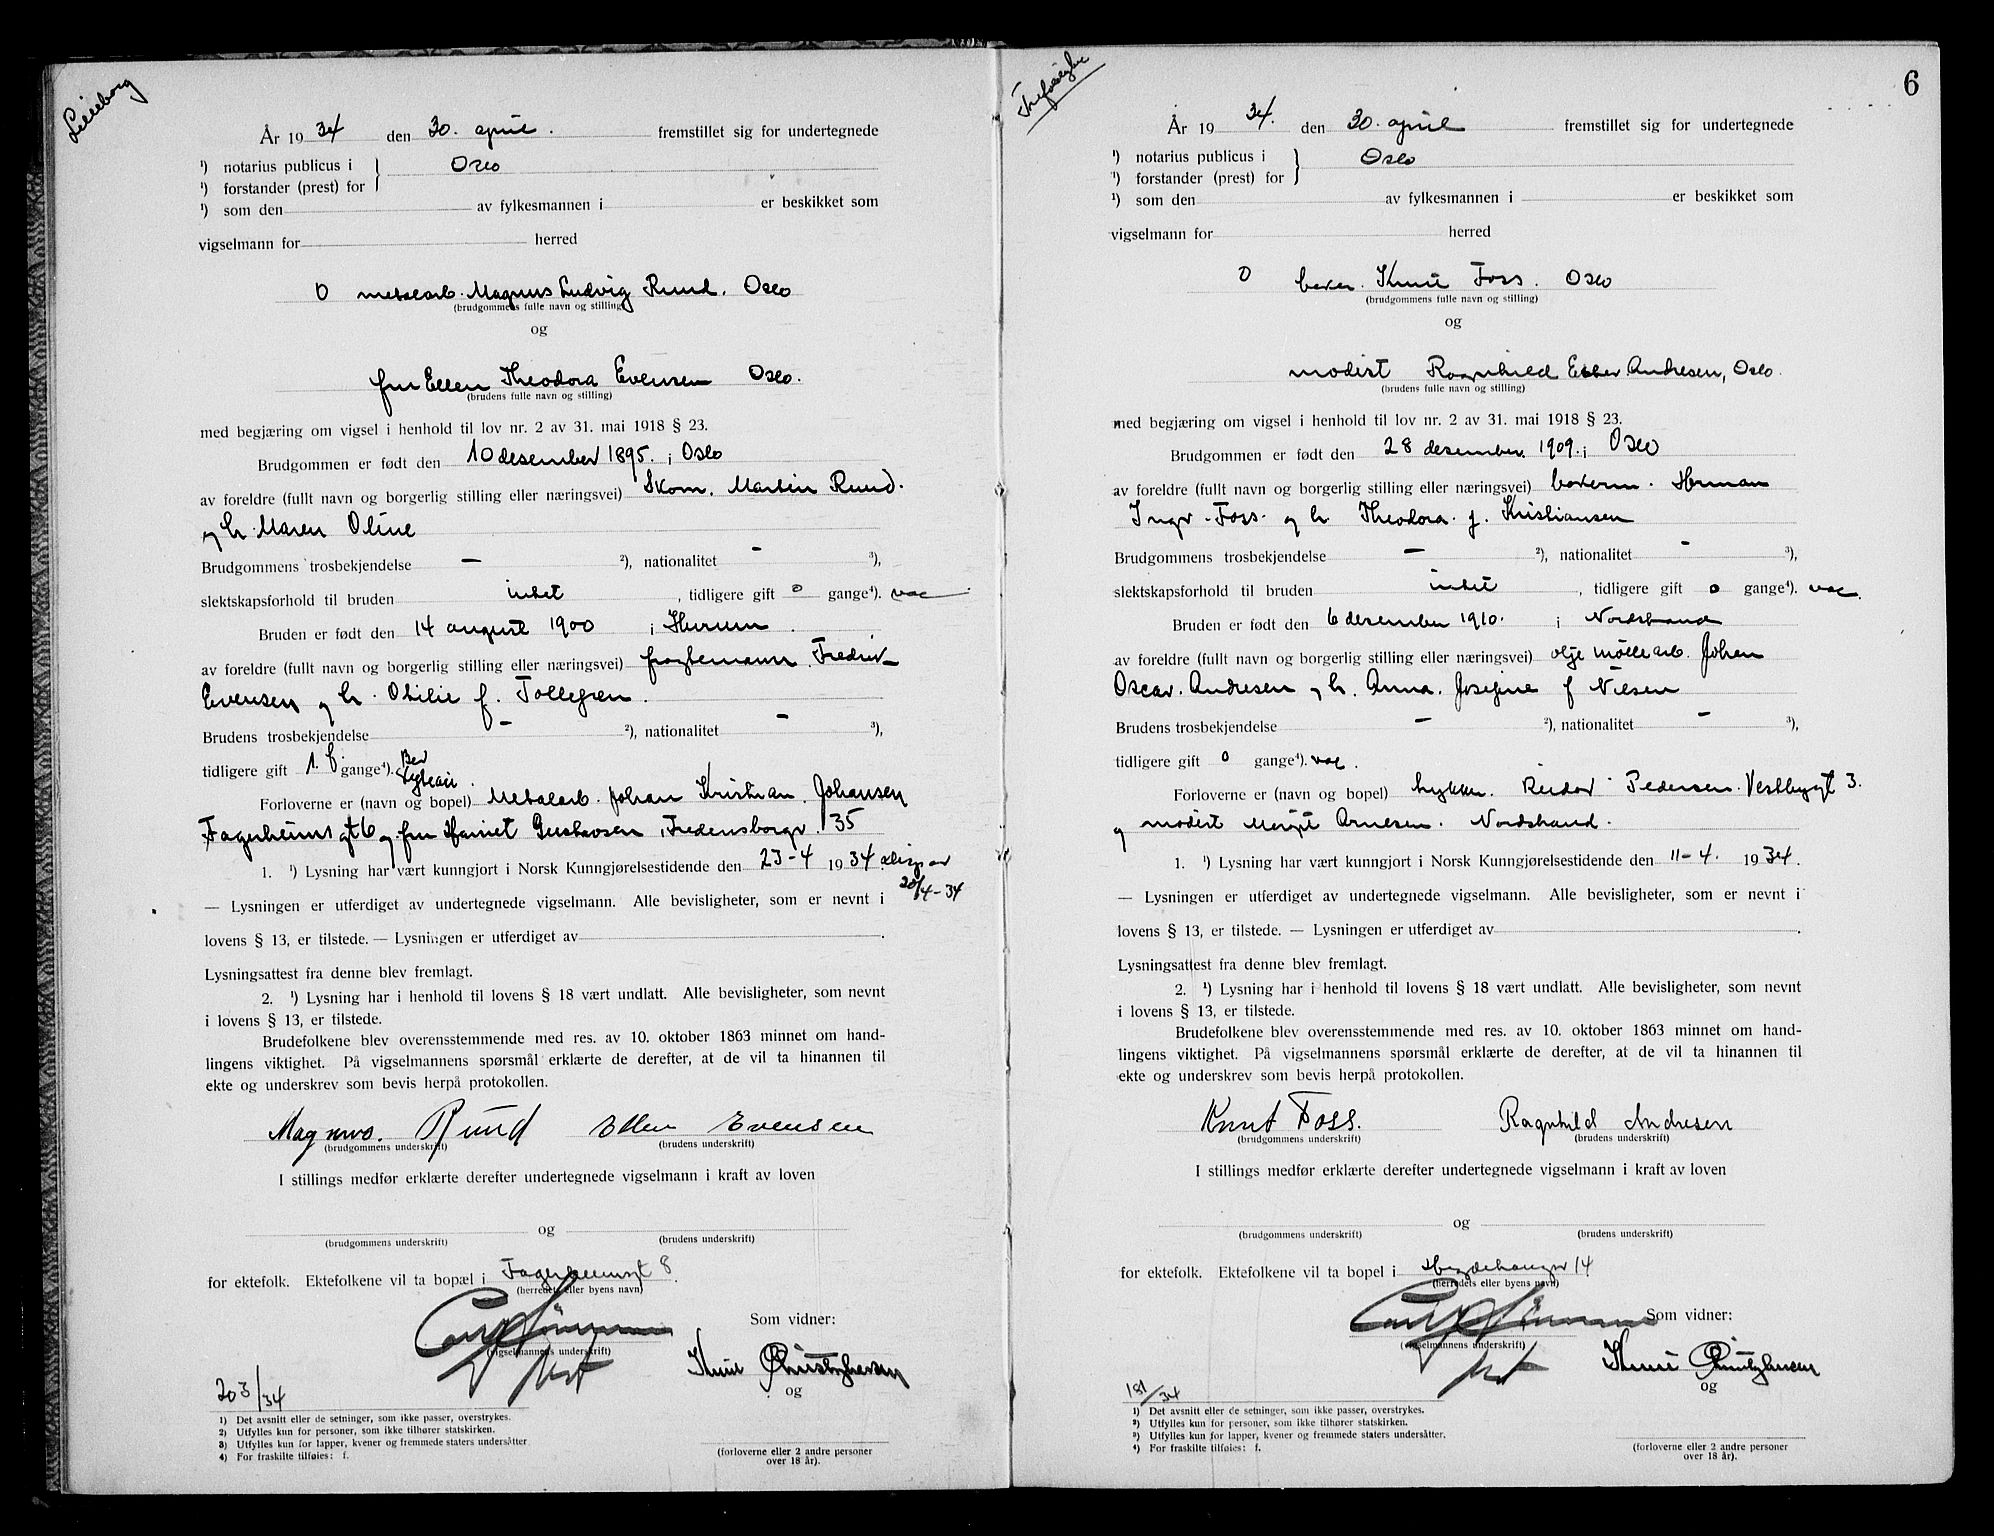 Lilleborg
År 1934 den 30. april. fremstillet sig for undertegnede
¹) notarius publicus i } Oslo
¹) forstander (prest) for
¹) som den av fylkesmannen i er beskikket som
vigselmann for herred
0 metalarb. Magnus Ludvig Ruud. Oslo
(brudgommens fulle navn og stilling)
og
fru Ellen Theodora Evensen Oslo.
(brudens fulle navn og stilling)
med begjæring om vigsel i henhold til lov nr. 2 av 31. mai 1918 § 23.
Brudgommen er født den 10 desember 1895. i Oslo
av foreldre (fullt navn og borgerlig stilling eller næringsvei) Skom. Martin Ruud.
og h. Maren Oline
Brudgommens trosbekjendelse — ²), nationalitet — ³),
slektskapsforhold til bruden intet, tidligere gift 0 gange⁴). vac
Bruden er født den 14 august 1900 i Hurum.
av foreldre (fullt navn og borgerlig stilling eller næringsvei) fragtemann. Fredrik
Evensen og h. Otilie f. Tollegren.
Brudens trosbekjendelse — ²), nationalitet — ³),
tidligere gift 1. f gange⁴). Bev
Forloverne er (navn og bopel) Metalarb. Johan Kristian. Johansen
Fagerheimsgt 6 og fru Harriet Gustavsen, Fredensborgv. 35
1. ¹) Lysning har vært kunngjort i Norsk Kunngjørelsestidende den 23-4 1934. disp av
20/4-34
— Lysningen er utferdiget av undertegnede vigselmann. Alle bevisligheter, som er nevnt i
lovens § 13, er tilstede. — Lysningen er utferdiget av
Lysningsattest fra denne blev fremlagt.
2. ¹) Lysning har i henhold til lovens § 18 vært undlatt. Alle bevisligheter, som nevnt
i lovens § 13, er tilstede.
Brudefolkene blev overensstemmende med res. av 10. oktober 1863 minnet om hand-
lingens viktighet. På vigselmannens spørsmål erklærte de derefter, at de vil ta hinannen til
ekte og underskrev som bevis herpå protokollen.
Magnus. Ruud Ellen Evensen
(brudgommens underskrift) (brudens underskrift)
I stillings medfør erklærte derefter undertegnede vigselmann i kraft av loven
og
(brudgommens underskrift) (brudens underskrift)
for ektefolk. Ektefolkene vil ta bopæl i Fagerheimsgt 8.
(herredets eller byens navn)
Som vidner:
(vigselmannens underskrift)
Knut
og
203/34
1) Det avsnitt eller de setninger, som ikke passer, overstrykes.
2) Utfylles kun for personer, som ikke tilhører statskirken.
3) Utfylles kun for lapper, kvener og fremmede staters undersåtter.
4) For fraskilte tilføies: f.
(forloverne eller 2 andre personer
over 18 år).
6
År 1934. den 30. april fremstillet sig for undertegnede
¹) notarius publicus i } Oslo
¹) forstander (prest) for
¹) som den av fylkesmannen i er beskikket som
vigselmann for herred
0 baker. Knut Foss. Oslo
(brudgommens fulle navn og stilling)
og
modist Ragnhild Ester Andresen, Oslo.
(brudens fulle navn og stilling)
med begjæring om vigsel i henhold til lov nr. 2 av 31. mai 1918 § 23.
Brudgommen er født den 28 desember. 1909. i Oslo
av foreldre (fullt navn og borgerlig stilling eller næringsvei) bakerm. Herman
Ingv. Foss. og h. Theodora. f. Kristiansen
Brudgommens trosbekjendelse — ²), nationalitet — ³),
slektskapsforhold til bruden intet, tidligere gift 0 gange⁴). vac.
Bruden er født den 6 desember 1910. i Nordstrand
av foreldre (fullt navn og borgerlig stilling eller næringsvei) olje møllearb. Johan
Oscar. Andresen og h. Anna. Josefine f Nilsen
Brudens trosbekjendelse — ²), nationalitet — ³),
tidligere gift 0 gange⁴). vac.
Forloverne er (navn og bopel) trykker. Reidar Pedersen. Vestbygt 3.
og modist Margit Arnesen. Nordstrand.
1. ¹) Lysning har vært kunngjort i Norsk Kunngjørelsestidende den 11-4. 1934.
— Lysningen er utferdiget av undertegnede vigselmann. Alle bevisligheter, som er nevnt i
lovens § 13, er tilstede. — Lysningen er utferdiget av
Lysningsattest fra denne blev fremlagt.
2. ¹) Lysning har i henhold til lovens § 18 vært undlatt. Alle bevisligheter, som nevnt
i lovens § 13, er tilstede.
Brudefolkene blev overensstemmende med res. av 10. oktober 1863 minnet om hand-
lingens viktighet. På vigselmannens spørsmål erklærte de derefter, at de vil ta hinannen til
ekte og underskrev som bevis herpå protokollen.
Knut Foss. Ragnhild Andresen
(brudgommens underskrift) (brudens underskrift)
I stillings medfør erklærte derefter undertegnede vigselmann i kraft av loven
og
(brudgommens underskrift) (brudens underskrift)
for ektefolk. Ektefolkene vil ta bopel i Hegdehaugsv 14
(herredets eller byens navn)
Som vidner:
(vigselmannens underskrift)
Knut
og
181/34
1) Det avsnitt eller de setninger, som ikke passer, overstrykes.
2) Utfylles kun for personer, som ikke tilhører statskirken.
3) Utfylles kun for lapper, kvener og fremmede staters undersåtter.
4) For fraskilte tilføies: f.
(forloverne eller 2 andre personer
over 18 år).